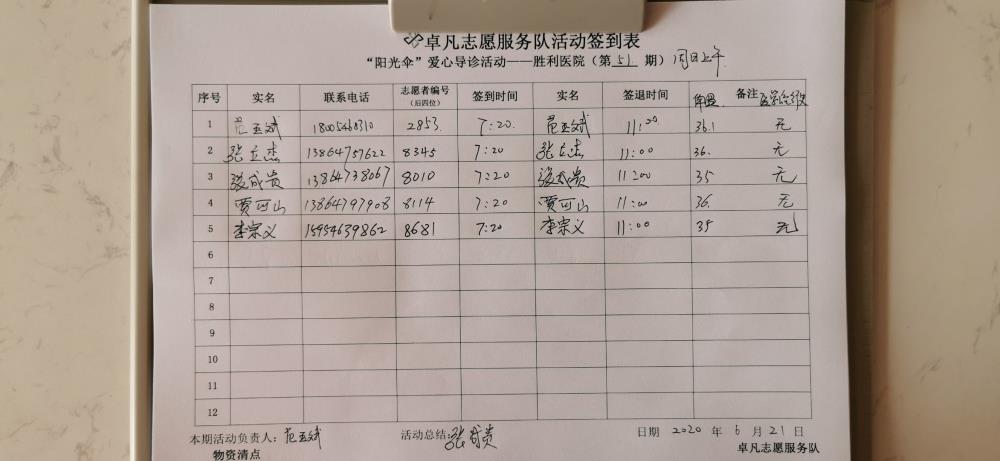 卓凡志愿服务队活动签到表
“阳光伞”爱心导诊活动——胜利医院（第 51 期）周日上午
序号 实名 联系电话 志愿者编号（后四位） 签到时间 实名 签退时间 体温 备注
1 范玉斌 18005460310 2853 7:20 范玉斌 11:00 36.1 无
2 张立杰 13864757622 8345 7:20 张立杰 11:00 36. 无
3 张成贵 13864738067 8010 7:20 张成贵 11:00 35 无
4 贾可山 13864797908 8114 7:20 贾可山 11:00 36. 无
5 李宗义 15954639862 8681 7:20 李宗义 11:00 35 无
6
7
8
9
10
11
12
本期活动负责人：范玉斌 活动总结：张成贵 日期 2020 年 6 月 21 日
物资清点 卓凡志愿服务队